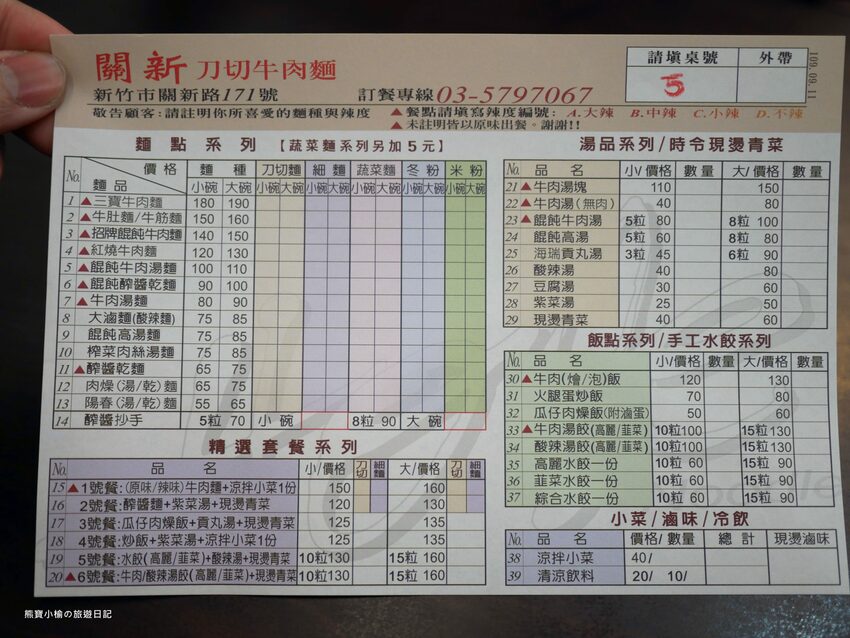 關新 刀切牛肉麵
新竹市關新路171號 訂餐專線03-5797067
敬告顧客:請註明你所喜愛的麵種與辣度
▲餐點請填寫辣度編號: A.大辣 B.中辣 C.小辣 D.不辣
▲未註明皆以原味出餐。謝謝!!
請填桌號 外帶
5
109.09.11
麵點系列【蔬菜麵系列另加5元】
No. 價格 麵品 麵種 刀切麵 細麵 蔬菜麵 冬粉 米粉
小碗 大碗 小碗 大碗 小碗 大碗 小碗 大碗 小碗 大碗 小碗 大碗
1 ▲三寶牛肉麵 180 190
2 ▲牛肚麵/牛筋麵 150 160
3 ▲招牌餛飩牛肉麵 140 150
4 ▲紅燒牛肉麵 120 130
5 ▲餛飩牛肉湯麵 100 110
6 ▲餛飩醡醬乾麵 90 100
7 ▲牛肉湯麵 80 90
8 大滷麵(酸辣麵) 75 85
9 餛飩高湯麵 75 85
10 榨菜肉絲湯麵 75 85
11 ▲醡醬乾麵 65 75
12 肉燥(湯/乾)麵 65 75
13 陽春(湯/乾)麵 55 65
14 醡醬抄手 5粒 70 小碗 8粒 90 大碗
精選套餐系列
No. 品名 小/價格 刀切 細麵 大/價格 刀切 細麵
15 ▲1號餐:(原味/辣味)牛肉麵+涼拌小菜1份 150 160
16 2號餐:醡醬麵+紫菜湯+現燙青菜 120 130
17 3號餐:瓜仔肉燥飯+貢丸湯+現燙青菜 125 135
18 4號餐:炒飯+紫菜湯+涼拌小菜1份 125 135
19 5號餐:水餃(高麗/韮菜)+酸辣湯+現燙青菜 10粒130 15粒 160
20 ▲6號餐:牛肉/酸辣湯餃(高麗/韮菜)+現燙青菜 10粒130 15粒 160
湯品系列/時令現燙青菜
No. 品名 小/價格 數量 大/價格 數量
21 ▲牛肉湯塊 110 150
22 ▲牛肉湯(無肉) 40 80
23 ▲餛飩牛肉湯 5粒 80 8粒 100
24 餛飩高湯 5粒 60 8粒 80
25 海瑞貢丸湯 3粒 45 6粒 90
26 酸辣湯 40 80
27 豆腐湯 30 60
28 紫菜湯 25 50
29 現燙青菜 40 60
飯點系列/手工水餃系列
No. 品名 小/價格 數量 大/價格 數量
30 ▲牛肉(燴/泡)飯 120 130
31 火腿蛋炒飯 70 80
32 瓜仔肉燥飯(附滷蛋) 50 60
33 ▲牛肉湯餃(高麗/韮菜) 10粒100 15粒130
34 酸辣湯餃(高麗/韮菜) 10粒100 15粒130
35 高麗水餃一份 10粒 60 15粒 90
36 韮菜水餃一份 10粒 60 15粒 90
37 綜合水餃一份 10粒 60 15粒 90
小菜/滷味/冷飲
No. 品名 價格/數量 總計 現燙滷味
38 涼拌小菜 40/
39 清涼飲料 20/ 10/
熊寶小榆の旅遊日記